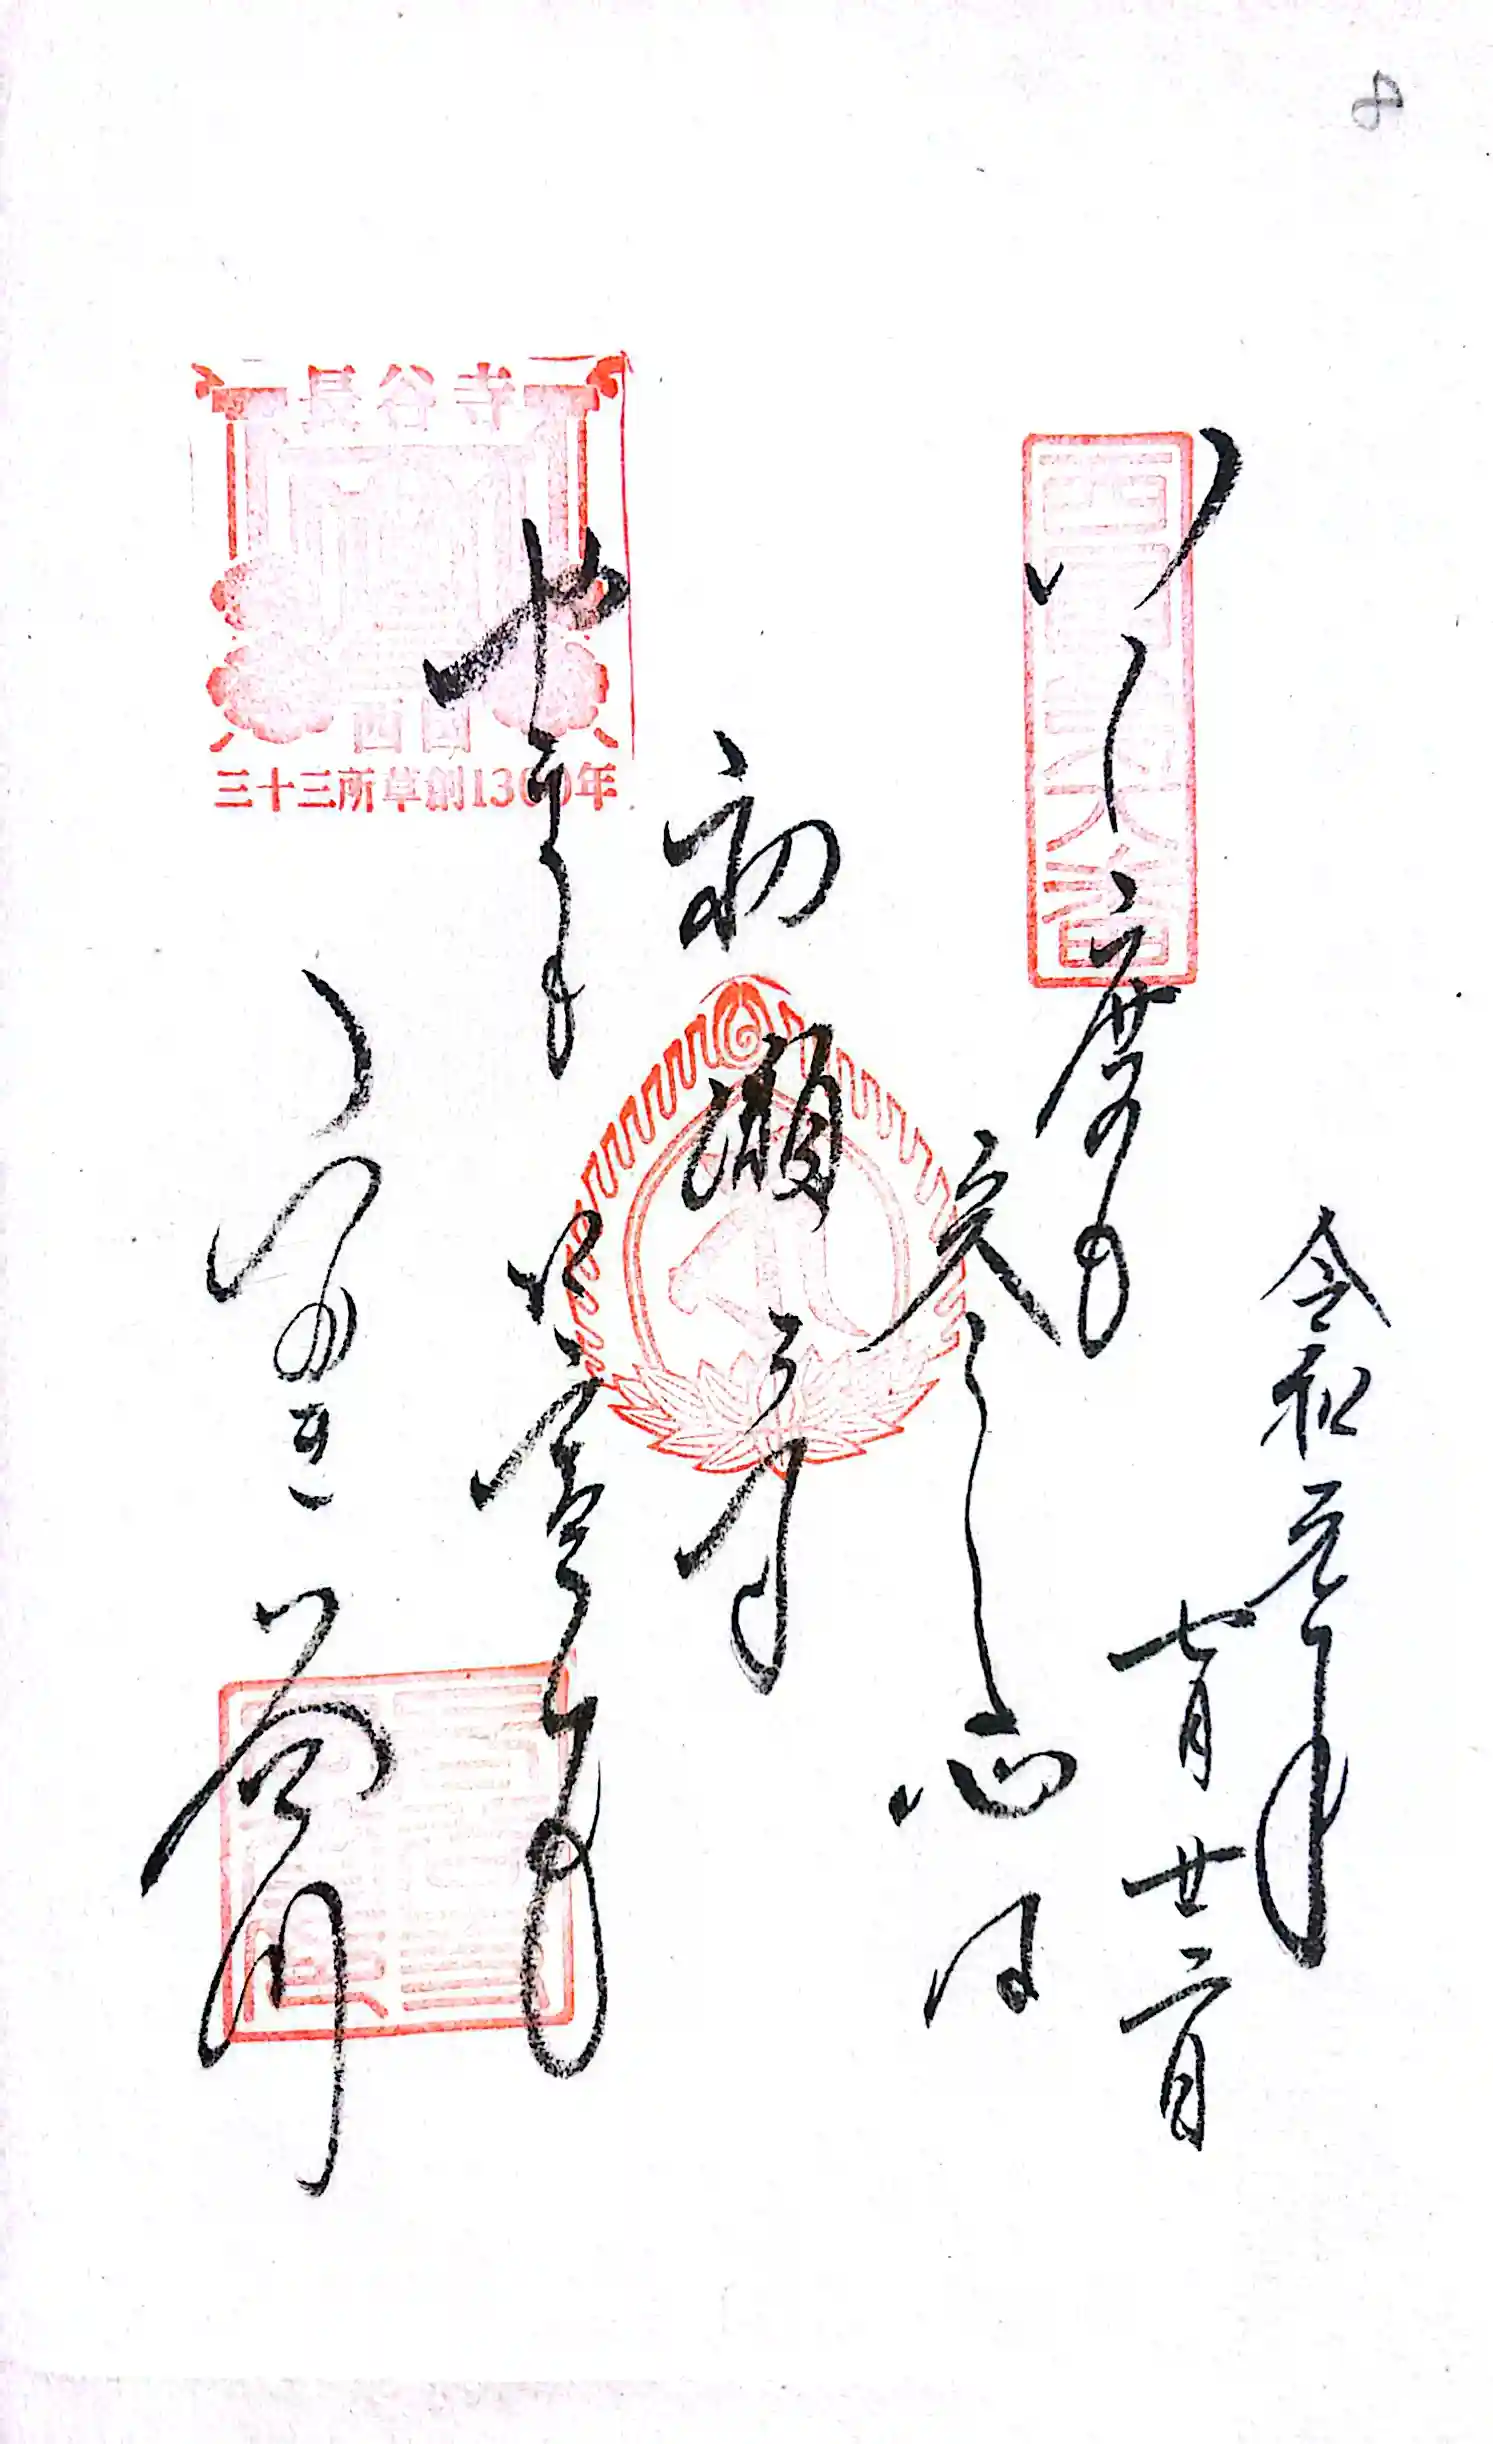 8
令和元年
七月廿二日
西国第八番
いく度も
参る心は
初瀬寺
山も
誓も
ふかき谷川
長谷寺
西国
三十三所草創1300年